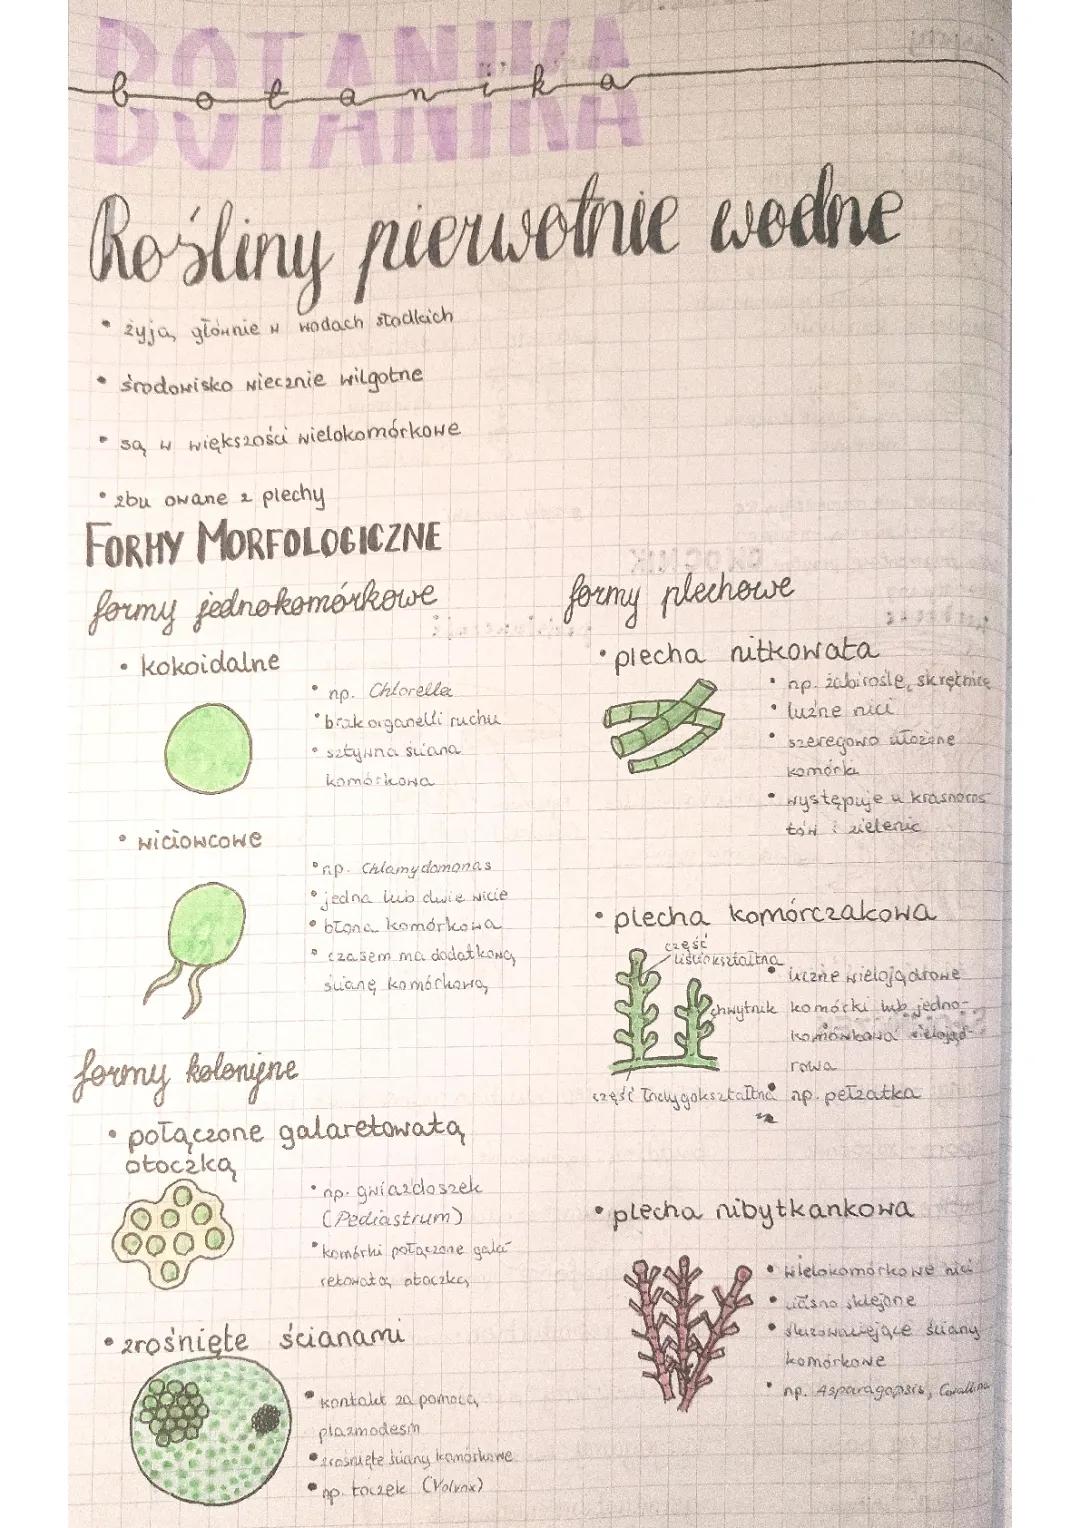 BOTANIKA
botanika
Rośliny pierwotnie wodne
• żyją głównie w wodach słodkich
• środowisko wiecznie wilgotne
• są w większości wielokomórkowe
• zbu owane z plechy
FORMY MORFOLOGICZNE
formy jednokomórkowe
• kokoidalne
• np. Chlorella
• brak organelli ruchu
• sztywna ściana
komórkowa
• wiciowcowe
• np. Chlamydomonas
• jedna lub dwie wicie
• błona komórkowa
• czasem ma dodatkową
ścianę komórkową
formy kolonijne
• połączone galaretowatą
otoczką
• np. gwiazdoszek
(Pediastrum)
• komórki połączone gala-
retowatą otoczką
• zrośnięte ścianami
• kontakt za pomocą
plazmodesm
• zrośnięte ściany komórkowe
• np. toczek (Volvox)
formy plechowe
• plecha nitkowata
• np. żabirośle, skrętnice
• luźne nici
• szeregowo ułożone
komórki
• występuje u krasnoros
tów i zielenic
• plecha komórczakowa
część
liściokształtna
chwytnik
część łodygokształtna
• liczne wielojądrowe
komórki lub jedno-
komórkowa wielojąd-
rowa
• np. pełzatka
• plecha nibytkankowa
• wielokomórkowe nici
• ciasno sklejone
• śluzowaciejące ściany
komórkowe
• np. Asparagopsis, Corallina